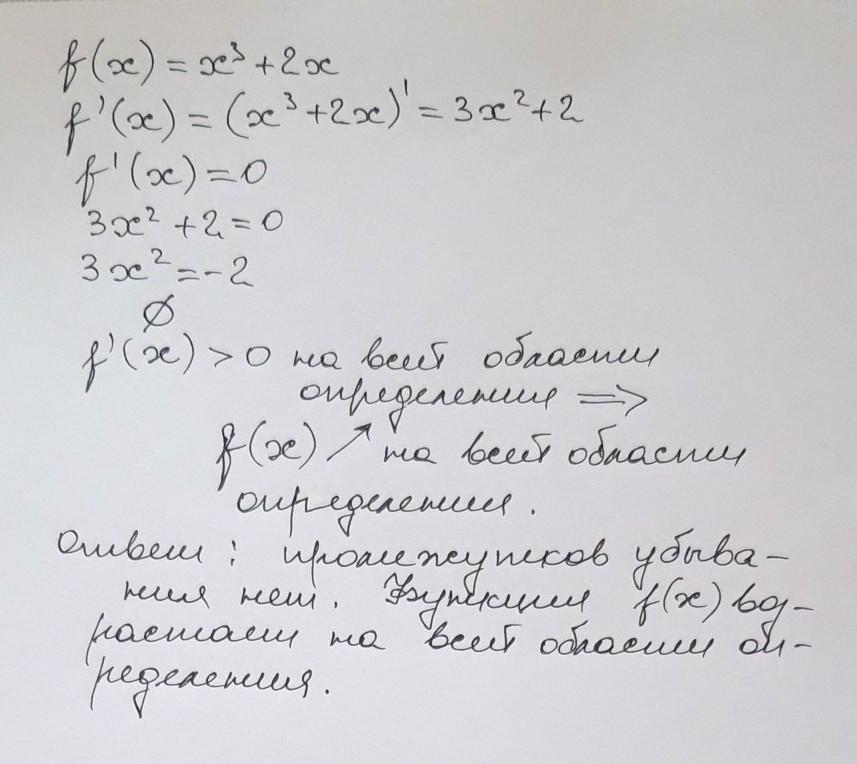 f(x) = x³ + 2x
f'(x) = (x³ + 2x)' = 3x² + 2
f'(x) = 0
3x² + 2 = 0
3x² = -2
∅
f'(x) > 0 на всей области
определения ⟹
f(x) ↗ на всей области
определения.
Ответ: промежутков убыва-
ния нет. Функция f(x) воз-
растает на всей области оп-
ределения.